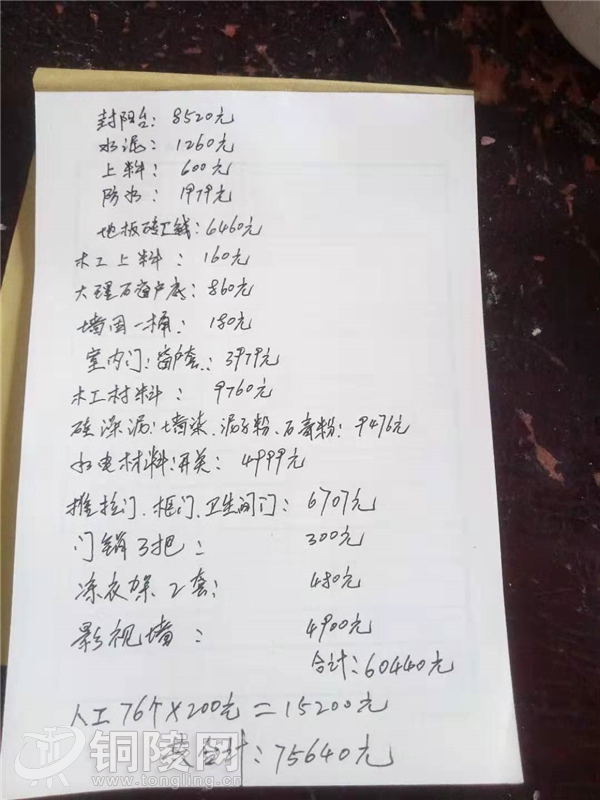 封阳台: 8520元
水泥: 1260元
上料: 600元
防水: 1979元
地板砖工钱: 6460元
木工上料: 160元
大理石窗户底: 860元
墙固一桶: 180元
室内门: 窗户套: 3979元
木工材料: 9760元
硅藻泥: 墙漆、泥子粉、石膏粉: 9476元
水电材料: 开关: 4999元
推拉门、框门、卫生间门: 6707元
门锁3把: 300元
凉衣架2套: 480元
影视墙: 4900元
合计: 60440元
人工76个×200元=15200元
合计: 75640元
铜陵网
www.tongling.cn